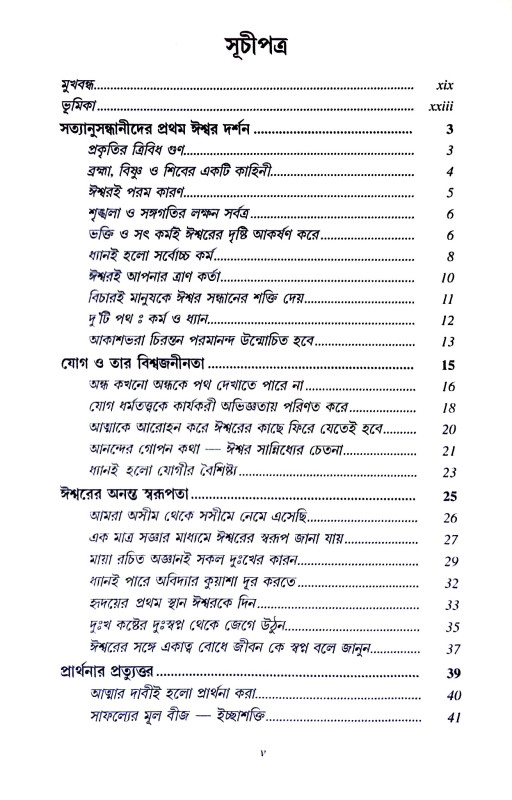 সূচীপত্র
মুখবন্ধ xix
ভূমিকা xxiii
সত্যানুসন্ধানীদের প্রথম ঈশ্বর দর্শন 3
প্রকৃতির ত্রিবিধ গুণ 3
ব্রহ্মা, বিষ্ণু ও শিবের একটি কাহিনী 4
ঈশ্বরই পরম কারণ 5
শৃঙ্খলা ও সঙ্গগতির লক্ষন সর্বত্র 6
ভক্তি ও সৎ কর্মই ঈশ্বরের দৃষ্টি আকর্ষণ করে 6
ধ্যানই হলো সর্বোচ্চ কর্ম 8
ঈশ্বরই আপনার ত্রাণ কর্তা 10
বিচারই মানুষকে ঈশ্বর সন্ধানের শক্তি দেয় 11
দু'টি পথ ঃ কর্ম ও ধ্যান 12
আকাশভরা চিরন্তন পরমানন্দ উন্মোচিত হবে 13
যোগ ও তার বিশ্বজনীনতা 15
অন্ধ কখনো অন্ধকে পথ দেখাতে পারে না 16
যোগ ধর্মতত্ত্বকে কার্যকরী অভিজ্ঞতায় পরিণত করে 18
আত্মাকে আরোহন করে ঈশ্বরের কাছে ফিরে যেতেই হবে 20
আনন্দের গোপন কথা — ঈশ্বর সান্নিধ্যের চেতনা 21
ধ্যানই হলো যোগীর বৈশিষ্ট্য 23
ঈশ্বরের অনন্ত স্বরূপতা 25
আমরা অসীম থেকে সসীমে নেমে এসেছি 26
এক মাত্র সজ্ঞার মাধ্যমে ঈশ্বরের স্বরূপ জানা যায় 27
মায়া রচিত অজ্ঞানই সকল দুঃখের কারন 29
ধ্যানই পারে অবিদ্যার কুয়াশা দূর করতে 32
হৃদয়ের প্রথম স্থান ঈশ্বরকে দিন 33
দুঃখ কষ্টের দুঃস্বপ্ন থেকে জেগে উঠুন 35
ঈশ্বরের সঙ্গে একাত্ব বোধে জীবন কে স্বপ্ন বলে জানুন 37
প্রার্থনার প্রত্যুত্তর 39
আত্মার দাবীই হলো প্রার্থনা করা 40
সাফল্যের মূল বীজ — ইচ্ছাশক্তি 41
v